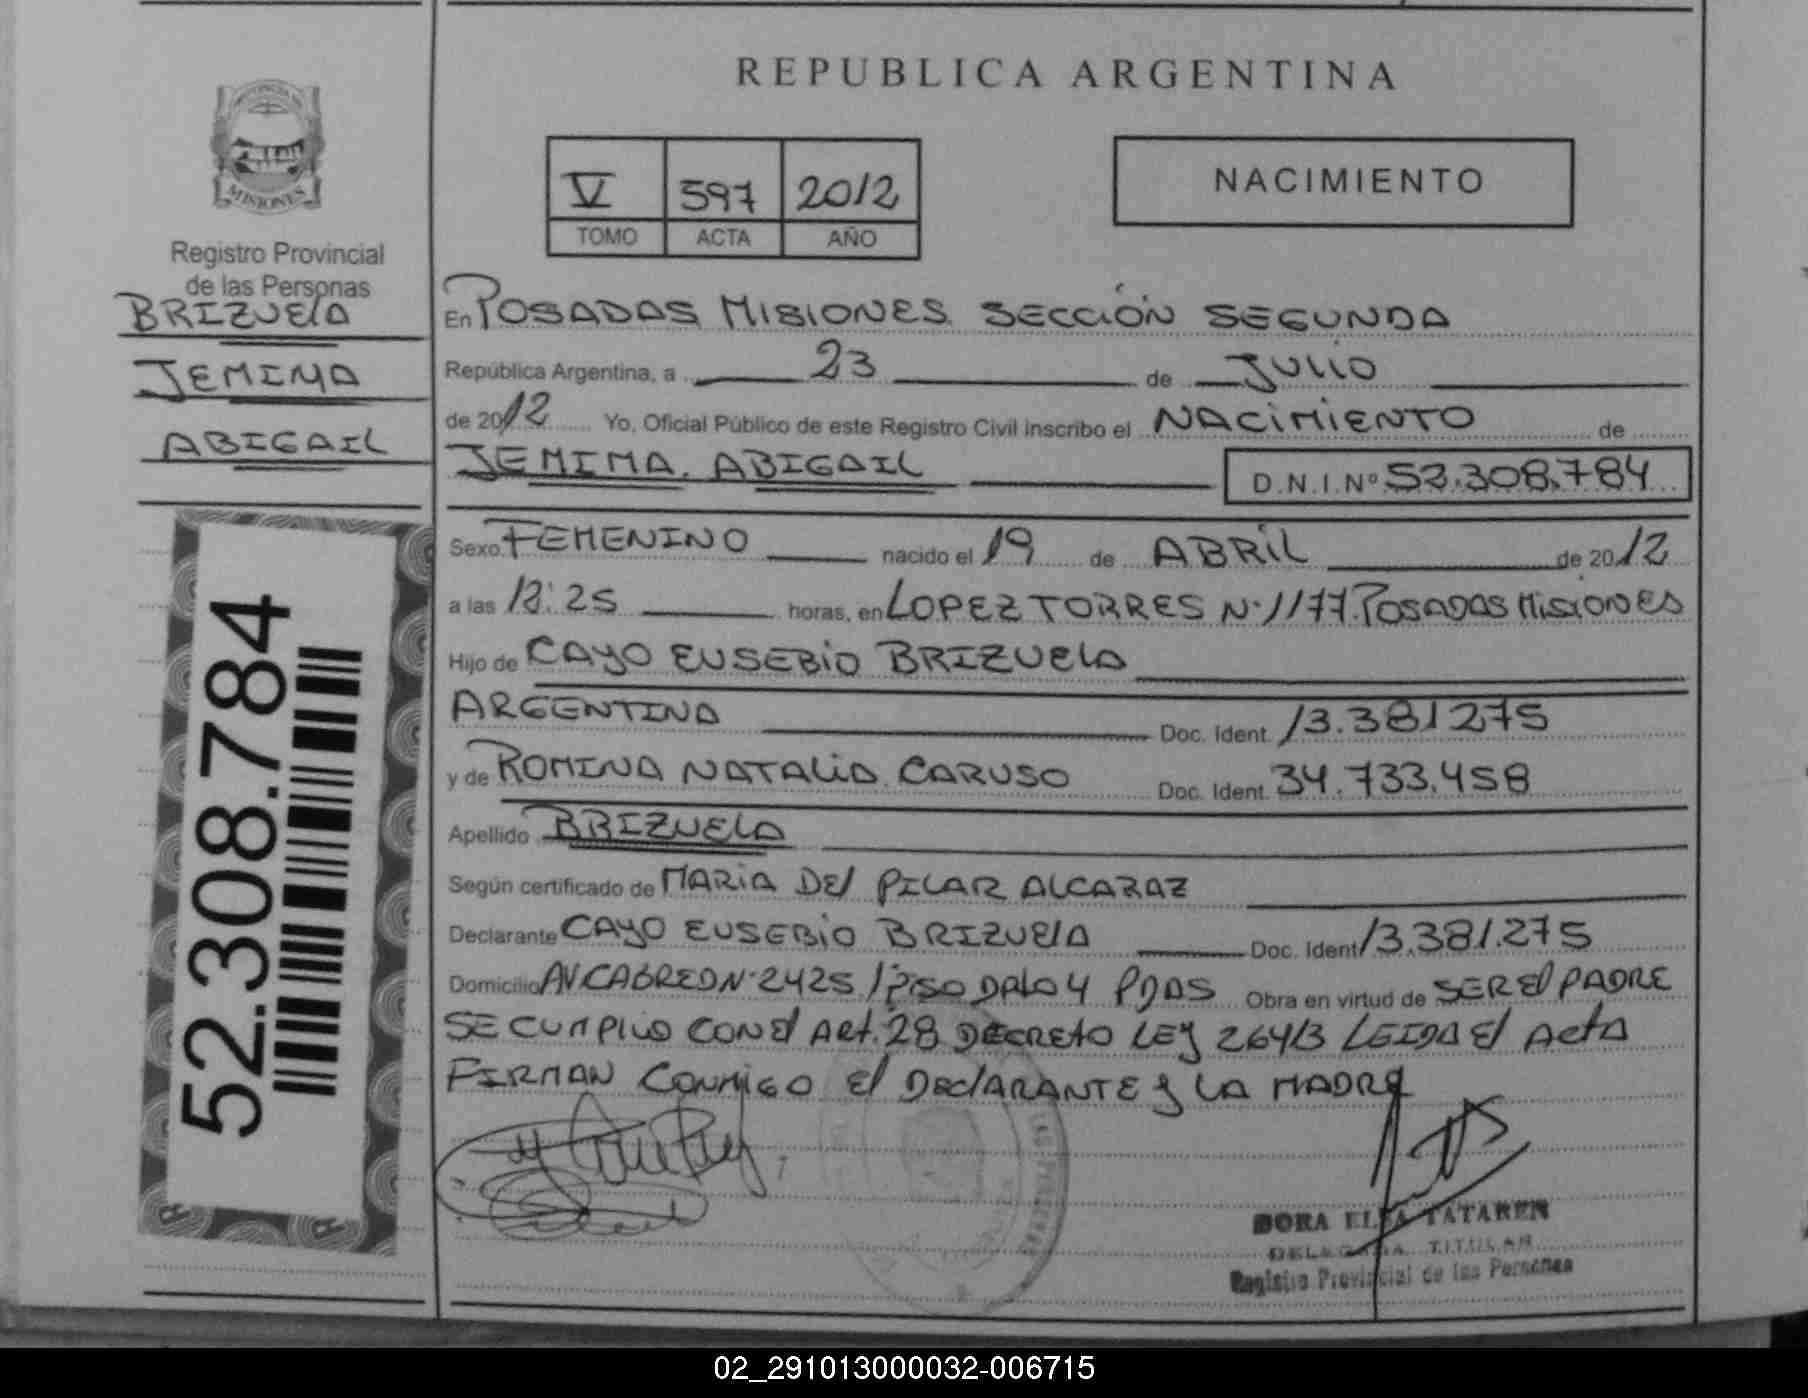 REPUBLICA ARGENTINA
V 597 2012
TOMO ACTA AÑO
NACIMIENTO
PROVINCIA DE
MISIONES
Registro Provincial
de las Personas
BRIZUELA
JEMIMA
ABIGAIL
52.308.784
En POSADAS MISIONES SECCIÓN SEGUNDA
República Argentina, a 23 de JULIO
de 2012 Yo, Oficial Público de este Registro Civil inscribo el NACIMIENTO de
JEMIMA. ABIGAIL D.N.I.Nº 52.308.784
Sexo FEMENINO nacido el 19 de ABRIL de 2012
a las 13:25 horas, en LOPEZ TORRES Nº 1177. POSADAS MISIONES
Hijo de CAYO EUSEBIO BRIZUELA
ARGENTINA Doc. Ident. 13.381275
y de ROMINA NATALIA CARUSO Doc. Ident. 34.733.458
Apellido BRIZUELA
Según certificado de MARIA DEL PILAR ALCARAZ
Declarante CAYO EUSEBIO BRIZUELA Doc. Ident 13.381.275
Domicilio AV. CABRED Nº 2425 1 PISO DPTO 4 PDAS Obra en virtud de SER EL PADRE
SE CUMPLIO CON EL ART. 28 DECRETO LEY 264/3 LEIDA EL ACTA
FIRMAN CONMIGO EL DECLARANTE y LA MADRE
DORA ELSA TATAREN
DELEGADA TITULAR
Registro Provincial de las Personas
02_291013000032-006715